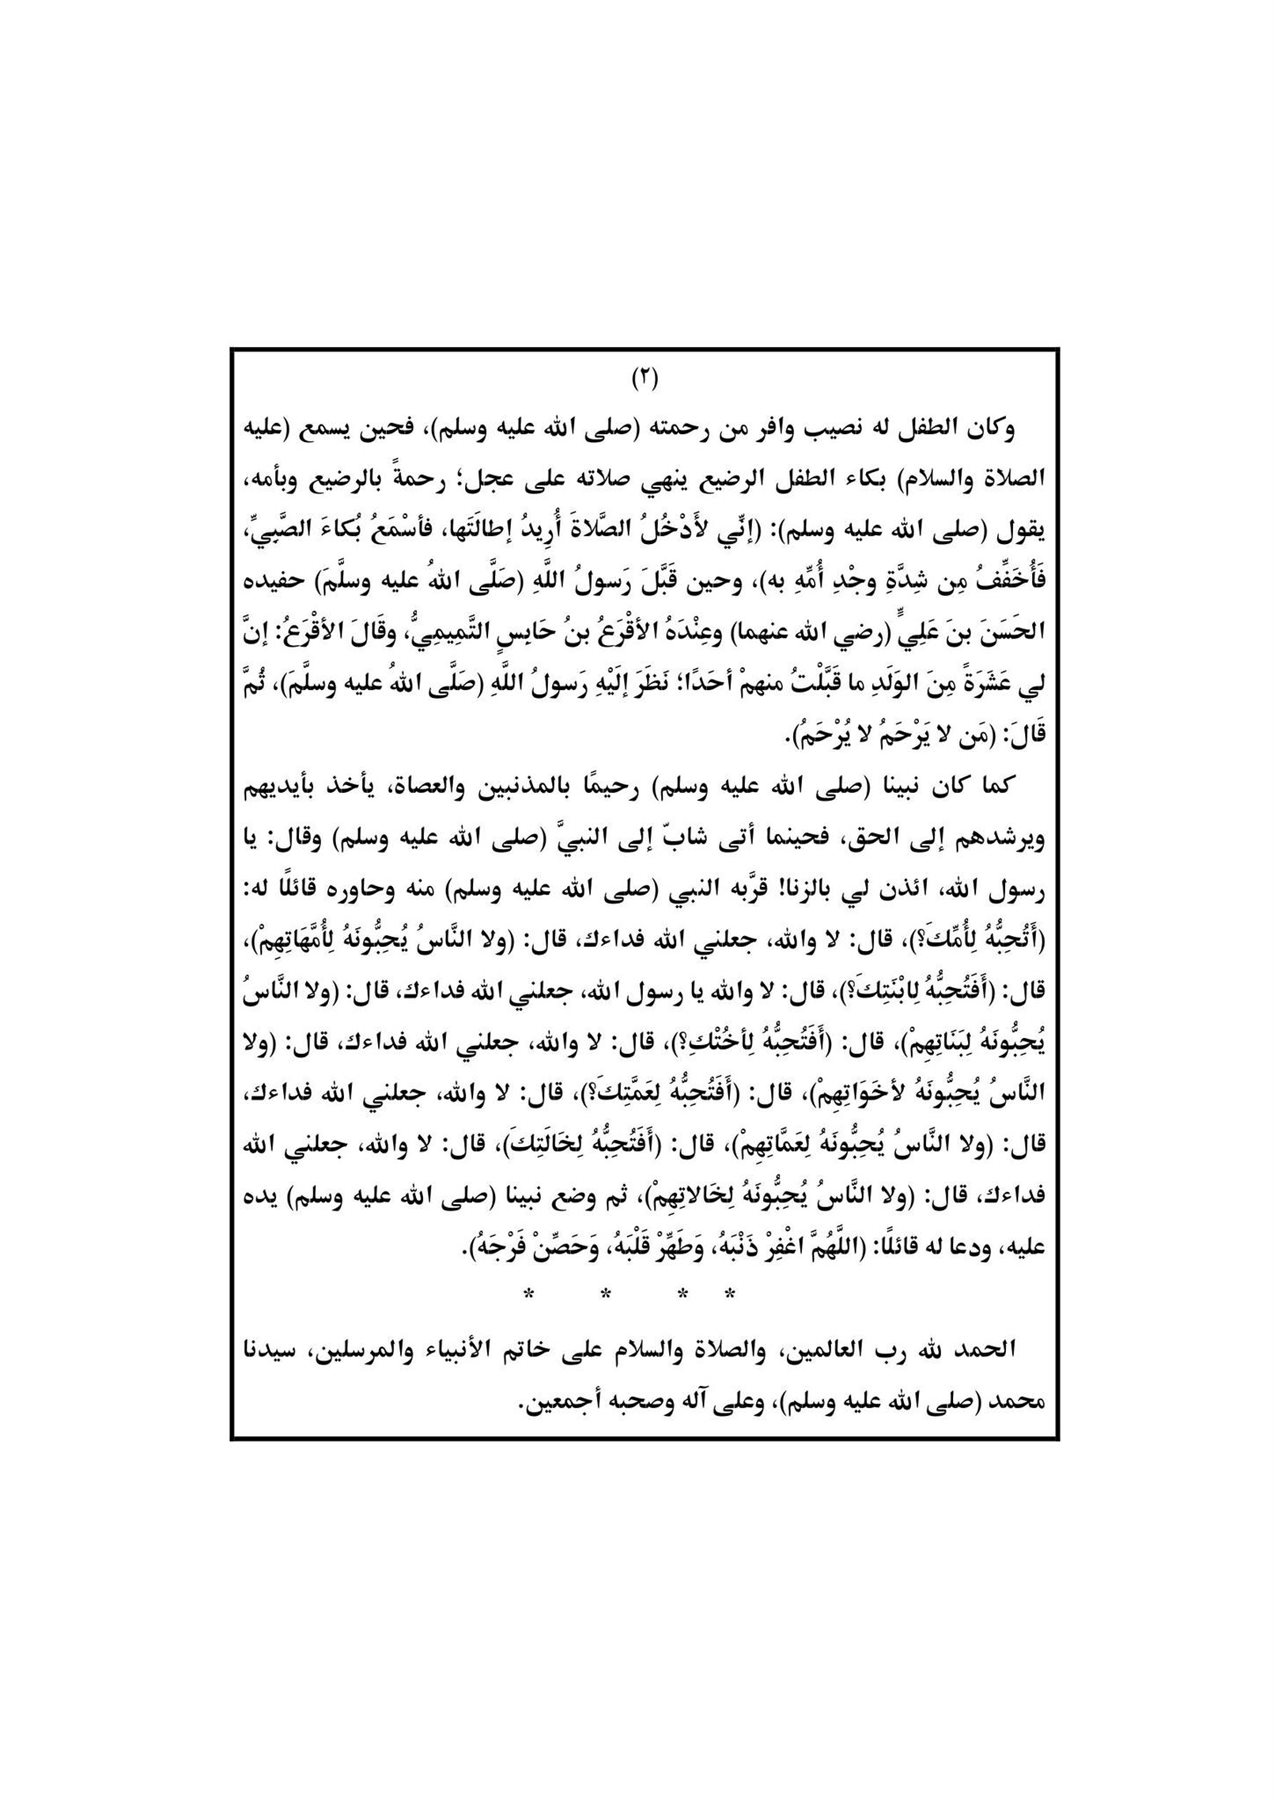 (٢)
وكان الطفل له نصيب وافر من رحمته (صلى الله عليه وسلم)، فحين يسمع (عليه
الصلاة والسلام) بكاء الطفل الرضيع ينهي صلاته على عجل؛ رحمةً بالرضيع وبأمه،
يقول (صلى الله عليه وسلم): (إنِّي لأَدْخُلُ الصَّلاةَ أُرِيدُ إطالَتَها، فأسْمَعُ بُكاءَ الصَّبِيِّ،
فَأُخَفِّفُ مِن شِدَّةِ وجْدِ أُمِّهِ به)، وحين قَبَّلَ رَسولُ اللَّهِ (صَلَّى اللهُ عليه وسلَّمَ) حفيده
الحَسَنَ بنَ عَلِيٍّ (رضي الله عنهما) وعِنْدَهُ الأقْرَعُ بنُ حَابِسٍ التَّمِيمِيُّ، وقَالَ الأقْرَعُ: إنَّ
لي عَشَرَةً مِنَ الوَلَدِ ما قَبَّلْتُ منهمْ أحَدًا؛ نَظَرَ إلَيْهِ رَسولُ اللَّهِ (صَلَّى اللهُ عليه وسلَّمَ)، ثُمَّ
قَالَ: (مَن لا يَرْحَمُ لا يُرْحَمُ).
كما كان نبينا (صلى الله عليه وسلم) رحيمًا بالمذنبين والعصاة، يأخذ بأيديهم
ويرشدهم إلى الحق، فحينما أتى شابّ إلى النبيَّ (صلى الله عليه وسلم) وقال: يا
رسول الله، ائذن لي بالزنا! قرَّبه النبي (صلى الله عليه وسلم) منه وحاوره قائلًا له:
(أَتُحِبُّهُ لِأُمِّكَ؟)، قال: لا والله، جعلني الله فداءك، قال: (ولا النَّاسُ يُحِبُّونَهُ لِأُمَّهَاتِهِمْ)،
قال: (أَفَتُحِبُّهُ لِابْنَتِكَ؟)، قال: لا والله يا رسول الله، جعلني الله فداءك، قال: (ولا النَّاسُ
يُحِبُّونَهُ لِبَنَاتِهِمْ)، قال: (أَفَتُحِبُّهُ لِأخُتْكِ؟)، قال: لا والله، جعلني الله فداءك، قال: (ولا
النَّاسُ يُحِبُّونَهُ لأخَوَاتِهِمْ)، قال: (أَفَتُحِبُّهُ لِعَمَّتِكَ؟)، قال: لا والله، جعلني الله فداءك،
قال: (ولا النَّاسُ يُحِبُّونَهُ لِعَمَّاتِهِمْ)، قال: (أَفَتُحِبُّهُ لِخَالَتِكَ)، قال: لا والله، جعلني الله
فداءك، قال: (ولا النَّاسُ يُحِبُّونَهُ لِخَالاتِهِمْ)، ثم وضع نبينا (صلى الله عليه وسلم) يده
عليه، ودعا له قائلًا: (اللَّهُمَّ اغْفِرْ ذَنْبَهُ، وَطَهِّرْ قَلْبَهُ، وَحَصِّنْ فَرْجَهُ).
* * * *
الحمد لله رب العالمين، والصلاة والسلام على خاتم الأنبياء والمرسلين، سيدنا
محمد (صلى الله عليه وسلم)، وعلى آله وصحبه أجمعين.